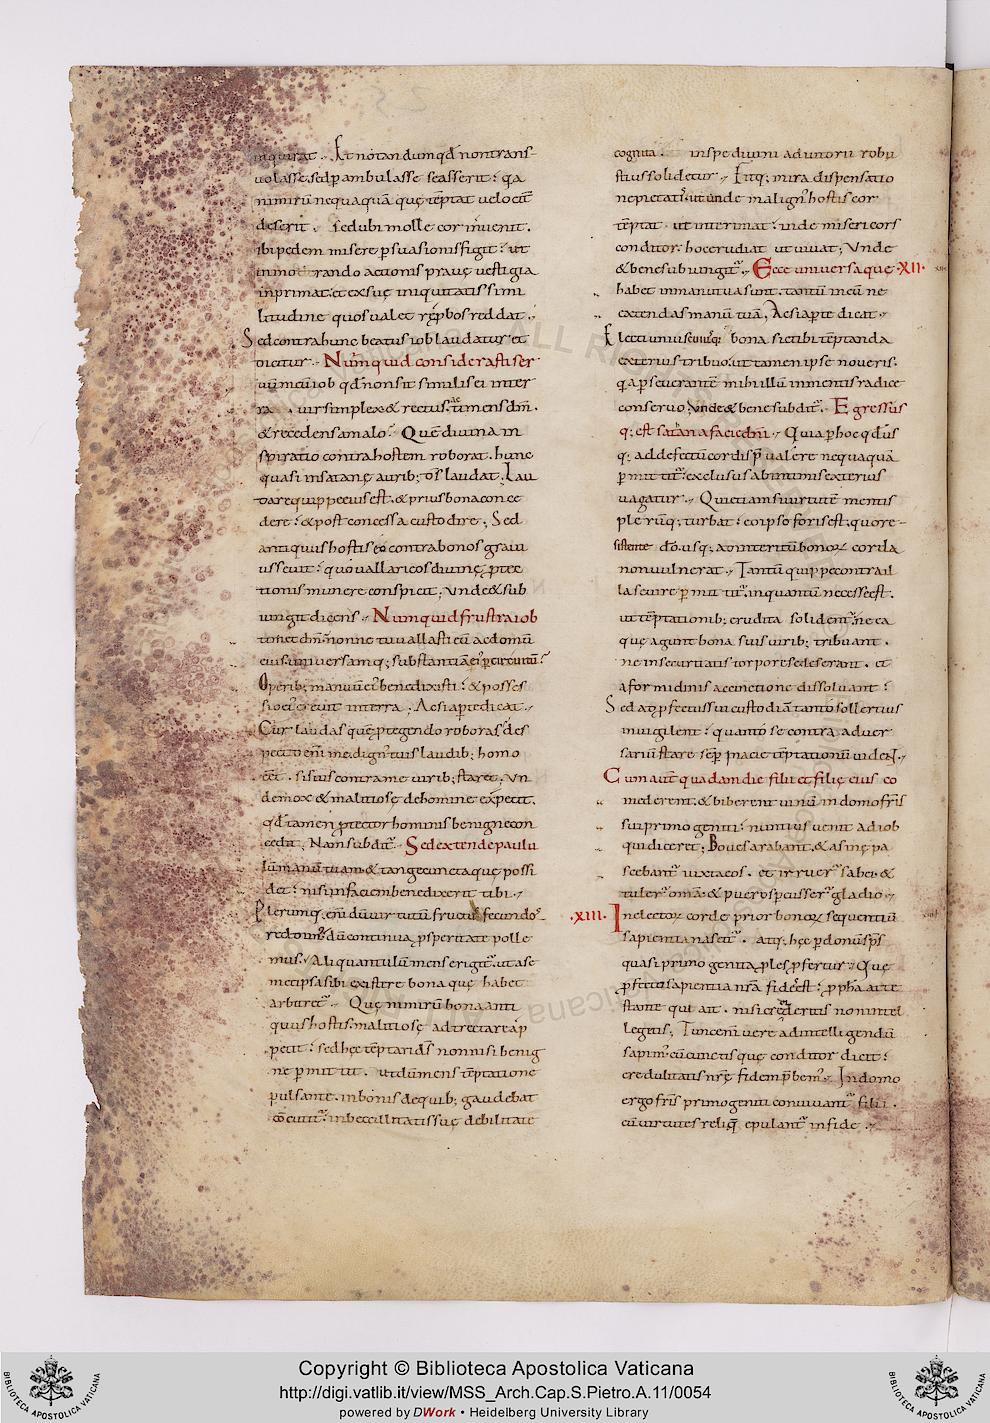 inquirat. Et notandum qd non trans-
volasse, sed pambulasse se asserit: qa
nimirū nequaquā quę tēptat velocit̄
deserit. sed ubi molle cor invenit.
ibi pedem misere psuasionis figit: ut
inmorando actionis pravę vestigia
inprimat. et ex suę iniquitatis simi
litudine quos valet repbos reddat.
Sed contra hunc beatus iob laudatur et
dicitur. Numquid considerasti ser
vū meū iob qd non sit similis ei in ter
ra. vir simplex & rectus. ac timens dm̄.
& recedens a malo? Quē divina in
spiratio contra hostem roborat. hunc
quasi in satanę aurib; ds̄ laudat. Lau
dare quippe eius est. & prius bona con ce
dere: & post concessa custodire; Sed
antiquus hostis eo contra bonos gravi
us sevit: quo vallari eos divinę ptec
tionis munere conspicit. Unde & sub
iungit dicens. Numquid frustra iob
timet dm̄. nonne tu vallasti eū ac domū
eius universamq; substantiā ei' p circuitū?
Operib; manuū ei' benedixisti: & posses
sio ei' crevit in terra; Ac si apte dicat.
Cur laudas quē ptegendo roboras; des
pecto enī me. dign' tuis laudib; homo
eēt. si suis contra me virib; staret. Un
de mox & malitiosę de homine expetit.
qd tamen ptector hominis benigne con
cedit. Nam subdit'. Sed extende paulu
lū manū tuam. & tange cuncta quę possi
det: nisi in faciem benedixerit tibi.
Plerumq; enī dū virtutū fructus fecundos
reddim' dū continua psperitate polle
mus. Aliquantulū mens erigit'. ut a se
metipsa sibi existere bona quę habet
arbitret'. Quę nimirū bona anti
quus hostis malitiosę adtrectare ap
petit: sed hęc tēptari ds̄ non nisi benig
ne pmittit. ut dū mens tēptatione
pulsante. in bonis de quib; gaudebat
cōcutit'. inbecillitatis suę debilitate
cognita. in spe divini adiutorii robu
stius solidetur. Fitq; mira dispensatio
ne pietatis. ut unde malign' hostis cor
tēptat ut interimat: inde misericors
conditor hoc erudiat ut vivat; Unde
& bene subiungit'. Ecce universa quę .XII.
habet in manu tua sunt. tantū in eū ne
extendas manū tuā; Ac si apte dicat.
Electi uniuscuiusq; bona sic tibi tēptanda
exterius tribuo. ut tamen ipse noveris.
qa pseverantē mihi illū in mentis radice
conservo. Unde & bene subdit'. Egressus
q; est satan a facie dn̄i. Quia p hoc qd us
q; ad defectū cordis pvalere nequaquā
pmittit': exclusus ab intimis exterius
vagatur. Qui etiam si virtutē mentis
plerūq; turbat: eo ipso foris est. quo re-
sistente do. usq; ad interitū bonor̄ corda
non vulnerat. Tantū quippe contra il
la sevire pmittit'. in quantū necesse est.
ut tēptationib; erudita solident'. ne ea
quę agunt bona suis virib; tribuant.
ne in securitatis torpore se deserant. et
a formidinis accinctione dissolvant:
Sed ad pfectus sui custodiā tanto sollertius
invigilent: quanto se contra adver
sariū stare semp in acie tēptationū vident.
Cum autē quadam die filii et filię eius co
mederent. & biberent vinū in domo fris
sui primogeniti: nuntius venit ad iob
qui diceret; Boves arabant. & asinę pa
scebant' iuxta eos. et irruer' sabei. &
tuler' omā. & pueros pcusser' gladio.
.XIII. In elector̄ corde prior bonor̄ sequentiū
sapientia nascit'. atq; hęc p donū sps̄
quasi primogenita ples pfertur. Quę
pfecto sapientia nrā fides ēst: ppha atte
stante qui ait. nisi credideritis non intel
legitis; Tunc enī vere ad intelligendū
sapim'. cū cunctis quę conditor dicit:
credulitatis nrę fidem pbem'. In domo
ergo fris primogeniti convivant' filii.
cū virtutes reliquę epulant' in fide.
Copyright © Biblioteca Apostolica Vaticana
http://digi.vatlib.it/view/MSS_Arch.Cap.S.Pietro.A.11/0054
powered by DWork • Heidelberg University Library